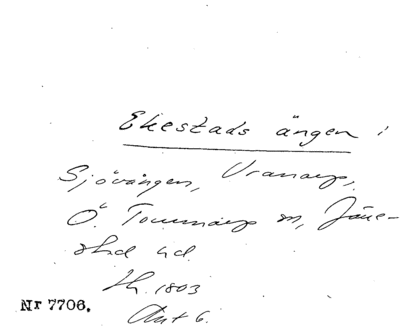 Ekestads ängen i
Sjövången, Vranarp,
Ö. Tommarp sn, Järre-
stad hd.
Lh. 1803
Akt 6.
Nr 7706.